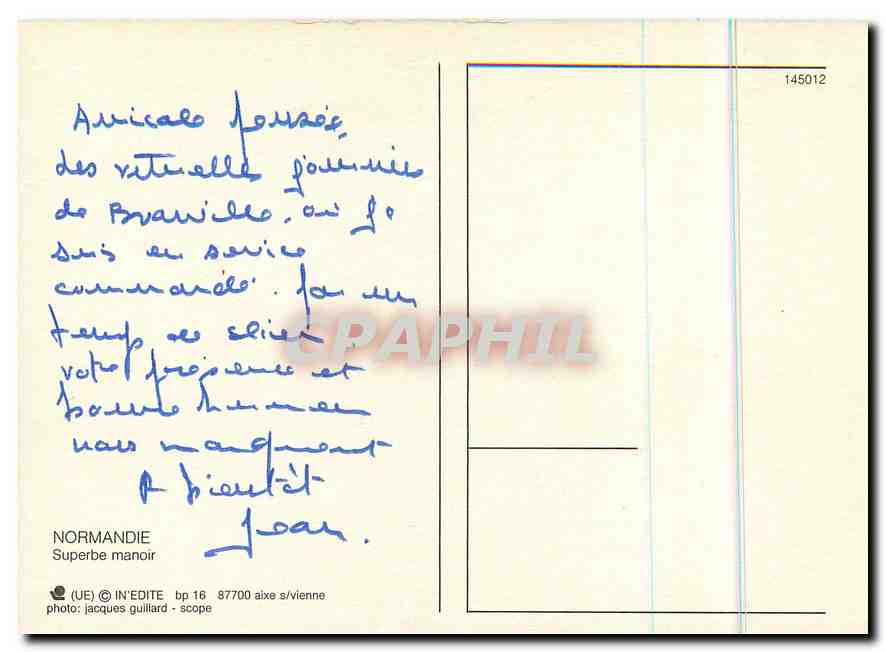 145012
Amicale pensée,
des rituelles journées
de où je
suis en service
commandé. Par un
temps de
votre présence et
bonne humeur
nous manquent
A bientôt
Jean.
CPAPHIL
NORMANDIE
Superbe manoir
(UE) © IN'EDITE bp 16 87700 aixe s/vienne
photo: jacques guillard - scope